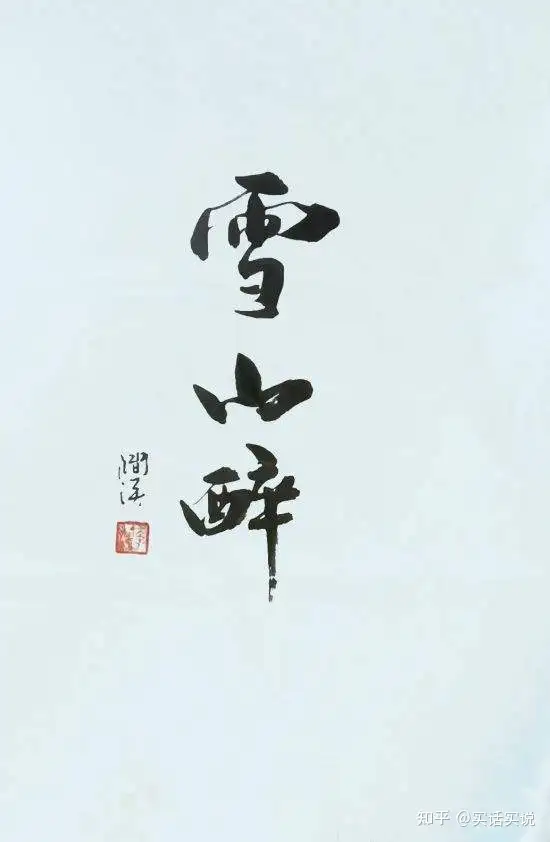 雪山醉
知乎 @实话实说